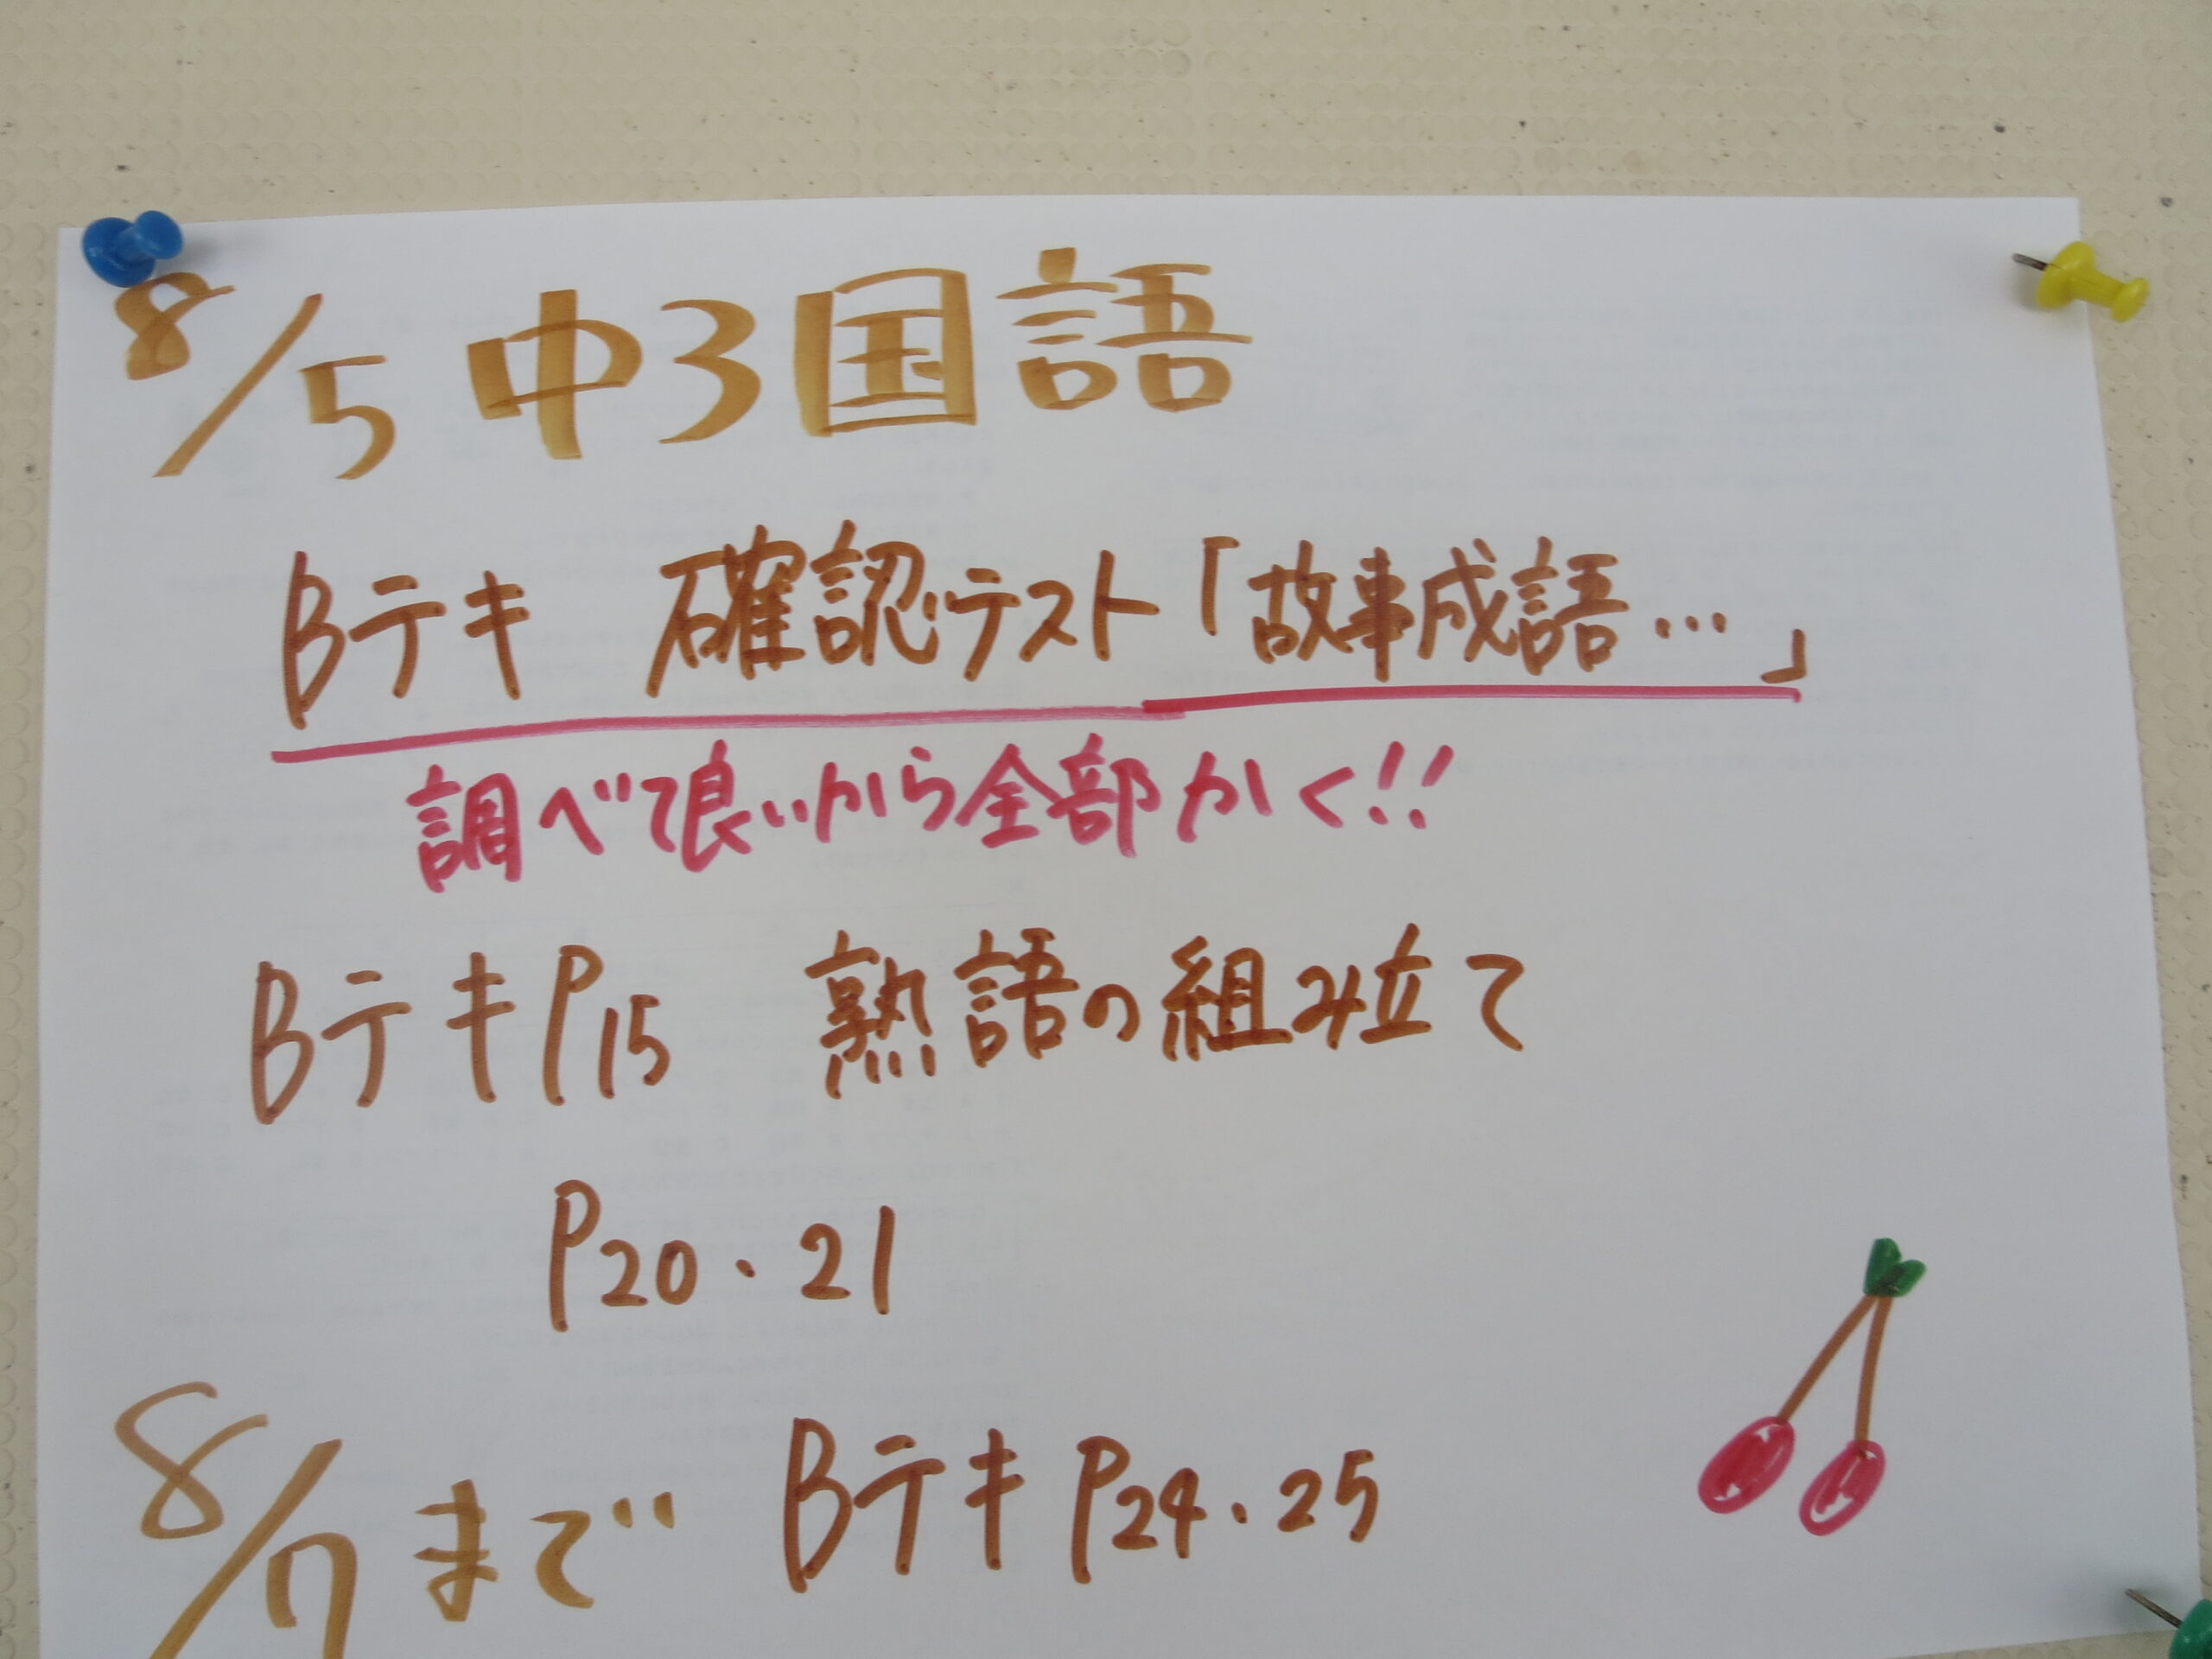 8/5 中3国語
Bテキ 確認テスト「故事成語…」
調べて良いから全部かく!!
BテキP15 熟語の組み立て
P20・21
8/7まで BテキP24・25